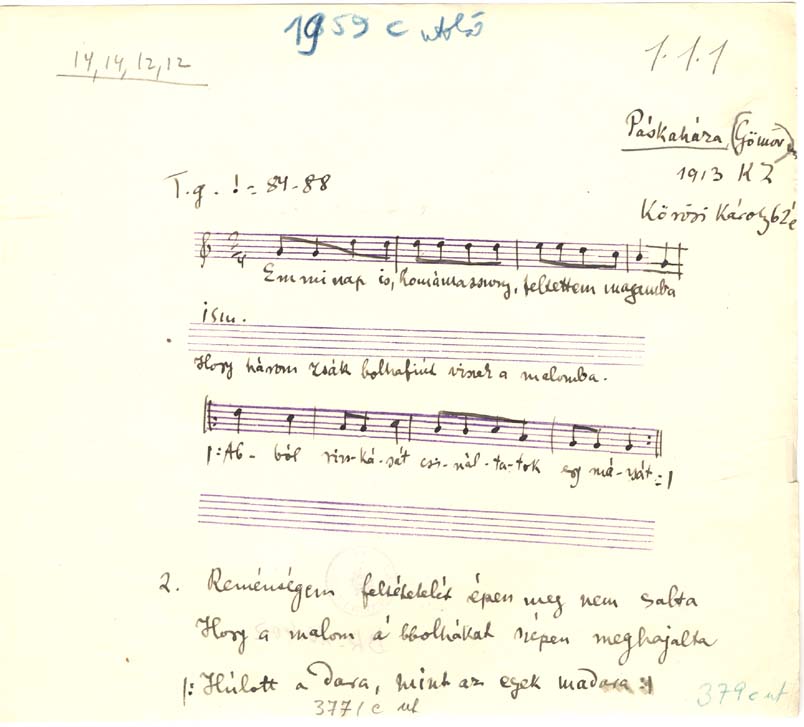 1959 c utolsó
14, 14, 12, 12
1.1.1
Páskaháza (Gömör)
1913 K Z
Kőrösi Károly 62 é
T.g. ♩ = 84-88
2/4
Emminap is, komámasszony, feltettem magamba
ism.
Hogy három zsák bolhafiút viszek a malomba.
|: Ab- ból riss-ká-sát csi-nál-ta-tok egy má-zsát :|
2. Reménségem feltételét épen meg nem
Hogy a malom a bbolhákat szépen meghajalta
|: Húlott a dara, mint az egek madara :|
3771 c ut
379 c ut